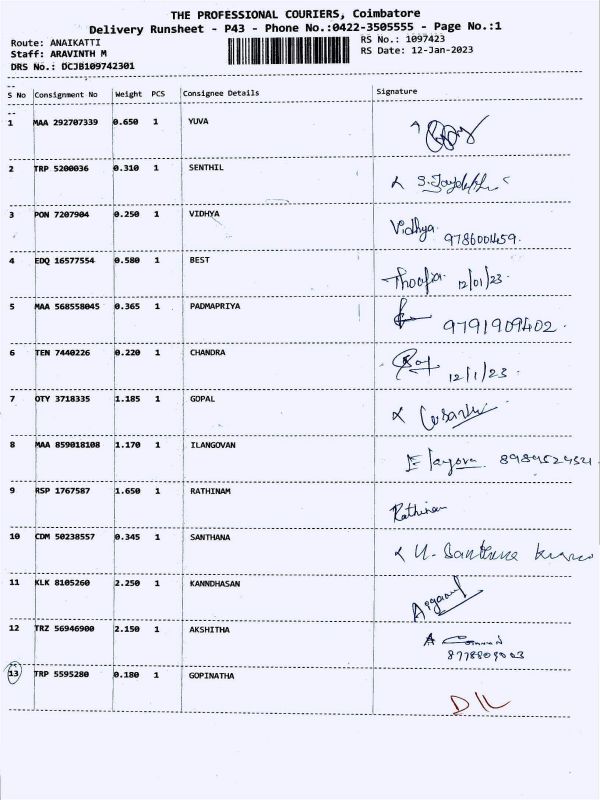 THE PROFESSIONAL COURIERS, Coimbatore
Delivery Runsheet - P43 - Phone No.:0422-3505555 - Page No.:1
Route: ANAIKATTI
RS No.: 1097423
Staff: ARAVINTH M
RS Date: 12-Jan-2023
DRS No.: DCJB109742301
S No Consignment No Weight PCS Consignee Details Signature
1 MAA 292707339 0.650 1 YUVA
2 TRP 5200036 0.310 1 SENTHIL
3 PON 7207904 0.250 1 VIDHYA Vidhya
9786001459.
4 EDQ 16577554 0.580 1 BEST
12/01/23.
5 MAA 568558045 0.365 1 PADMAPRIYA
9791909402.
6 TEN 7440226 0.220 1 CHANDRA
12/1/23.
7 OTY 3718335 1.185 1 GOPAL
8 MAA 859018108 1.170 1 ILANGOVAN
9 RSP 1767587 1.650 1 RATHINAM Rathinam
10 CDM 50238557 0.345 1 SANTHANA
11 KLK 8105260 2.250 1 KANNDHASAN
12 TRZ 56946900 2.150 1 AKSHITHA
13 TRP 5595280 0.180 1 GOPINATHA